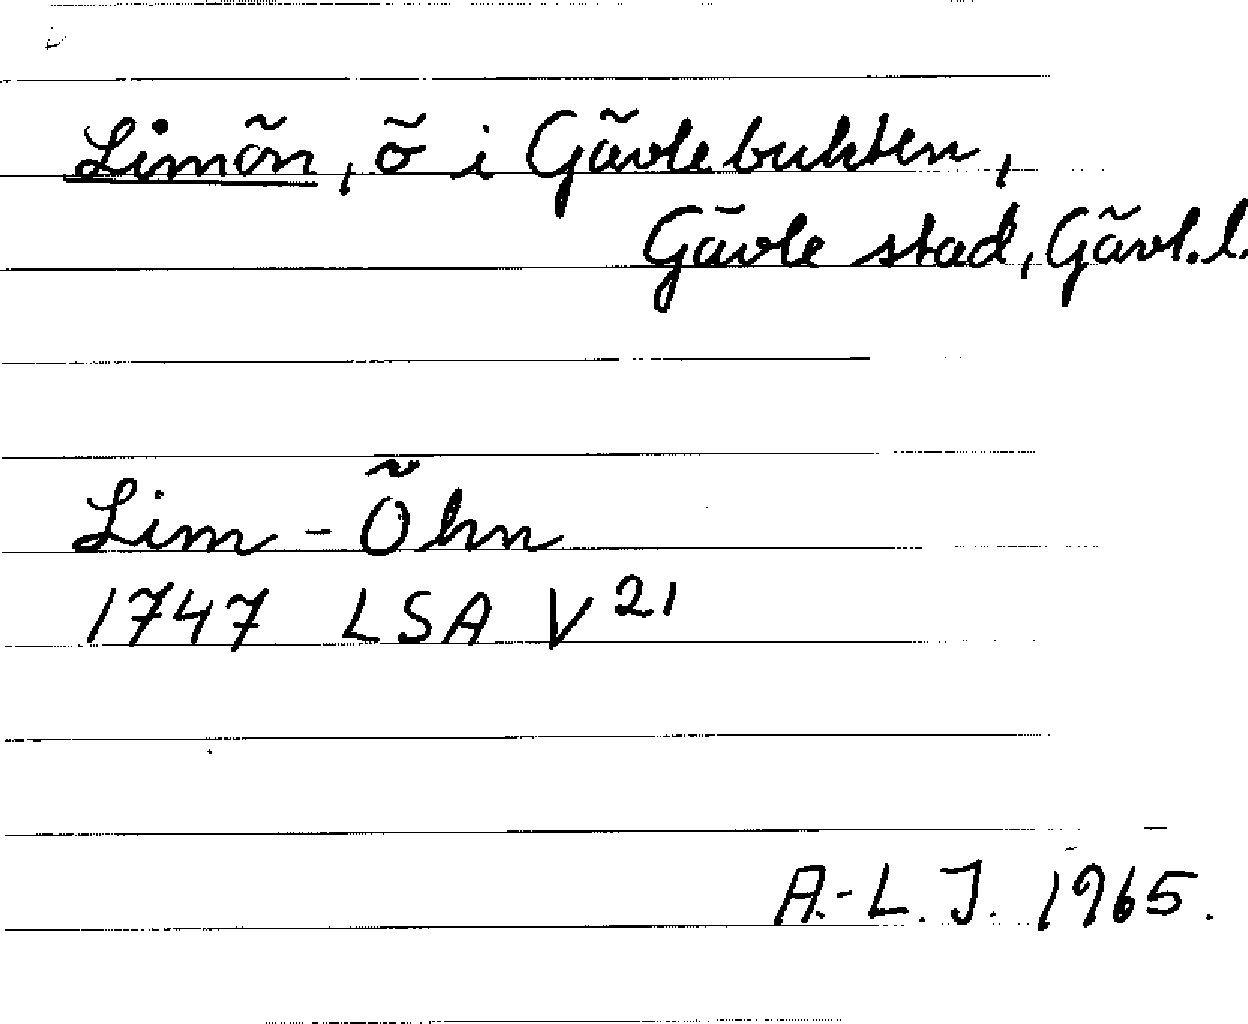 Limön, ö i Gävlebukten,
Gävle stad, Gävl.l.
Lim - Öhn
1747 LSA V 21
A.-L. J. 1965.